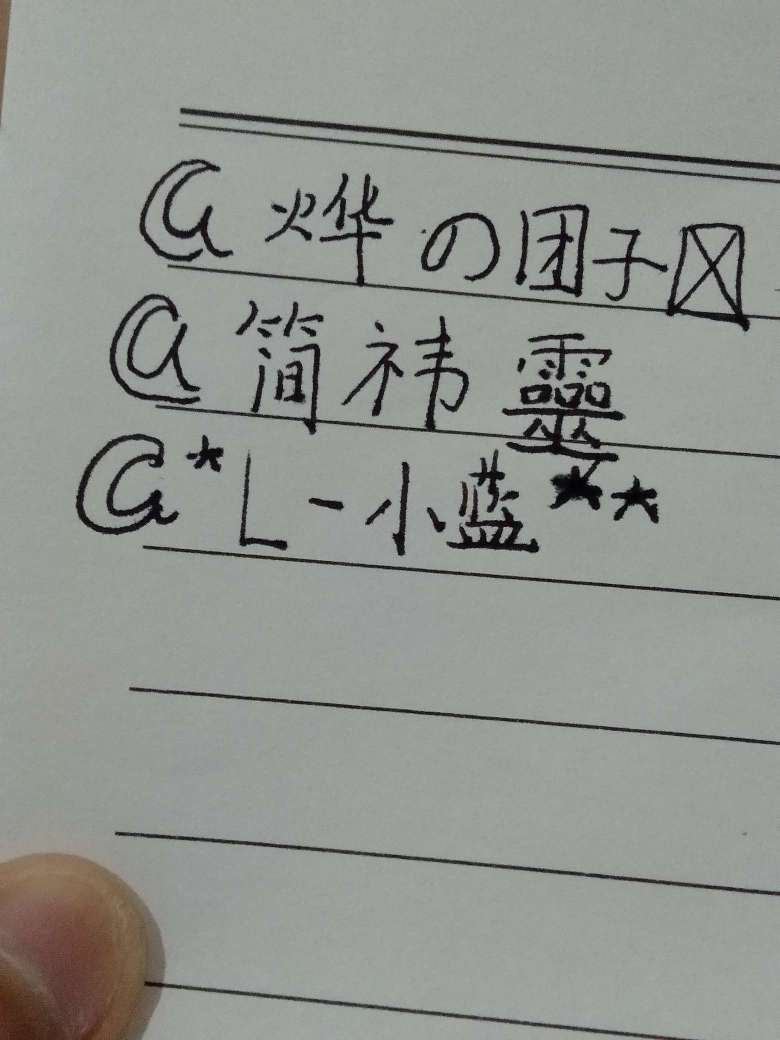 @烨の团子☒
@简祎靈
@*L-小蓝**